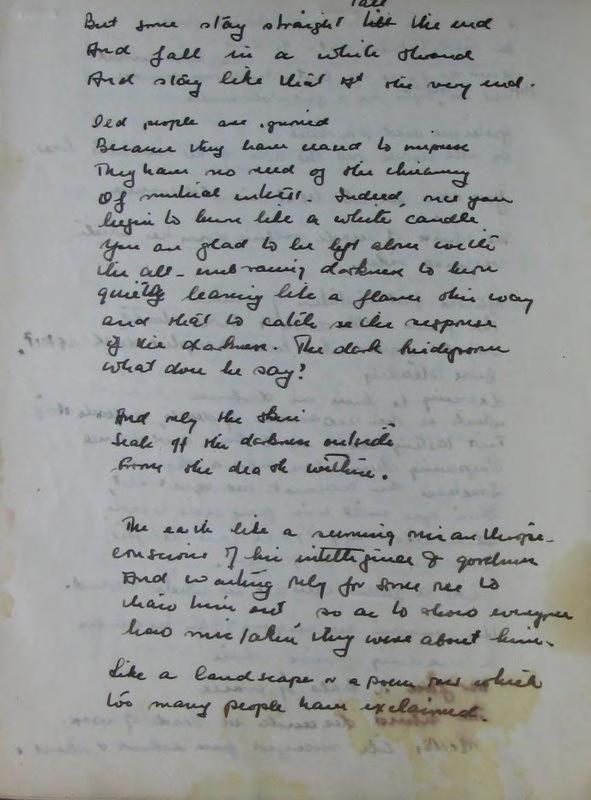 tall
But some stay straight till the end
And fall in a white
And stay like that at the very end.
Old people are
Because they have ceased to impress
They have no need of the
Of mutual interest. Indeed, once you
begin to burn like a white candle
You are glad to be left alone with
the all-embracing darkness to burn
quietly leaning like a flame this way
and that to catch the response
of the darkness. The dark bridegroom
What does he say?
And only the skin
Seals off the darkness outside
From the death within.
The earth like a misanthrope
conscious of his intelligence & goodness
And waiting only for some one to
thaw him out so as to show everyone
how mistaken they were about him.
Like a landscape or a poem over which
too many people have exclaimed.